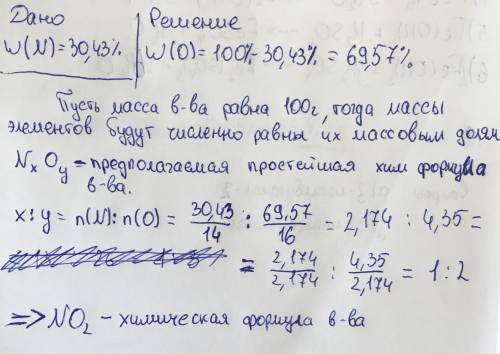 Дано
W(N)=30,43%
Решение
W(O)=100%-30,43% = 69,57%
Пусть масса в-ва равна 100г, тогда массы
элементов будут численно равны их массовым долям
NxOy - предполагаемая простейшая хим формула
в-ва.
x:y = n(N):n(O) = 30,43/14 : 69,57/16 = 2,174 : 4,35 =
= 2,174/2,174 : 4,35/2,174 = 1:2
=> NO2 - химическая формула в-ва